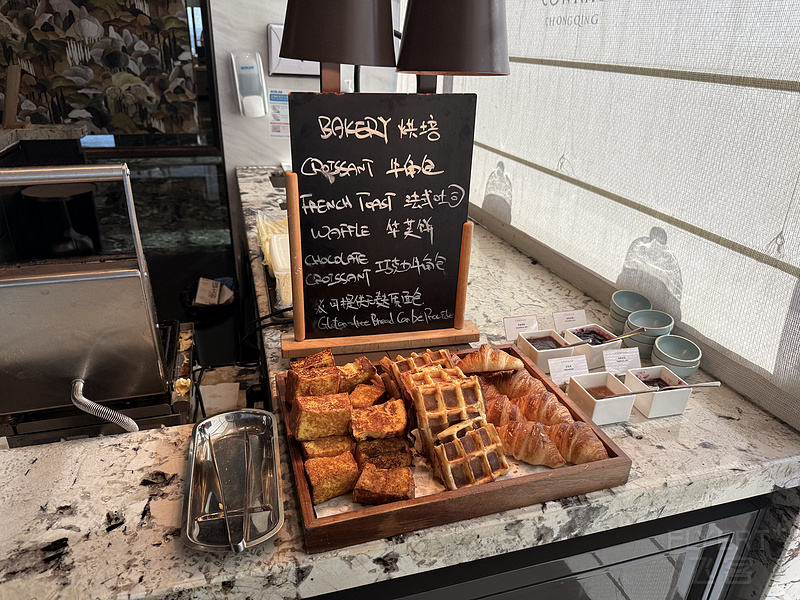 CHONGQING
BAKERY 烘培
CROISSANT 牛角包
FRENCH TOAST 法式吐司
WAFFLE 华芙饼
CHOCOLATE CROISSANT 巧克力牛角包
※可提供无麸质面包
Gluten-free Bread Can be Provide